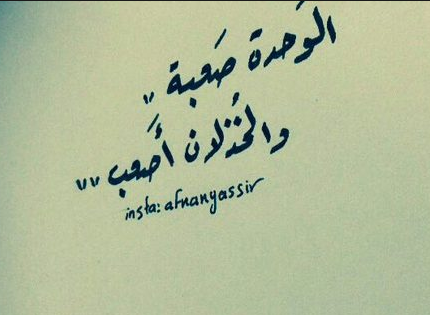 الوَحدة صَعبة "
والخُذلان أَصعب ""
insta: afnanyassir